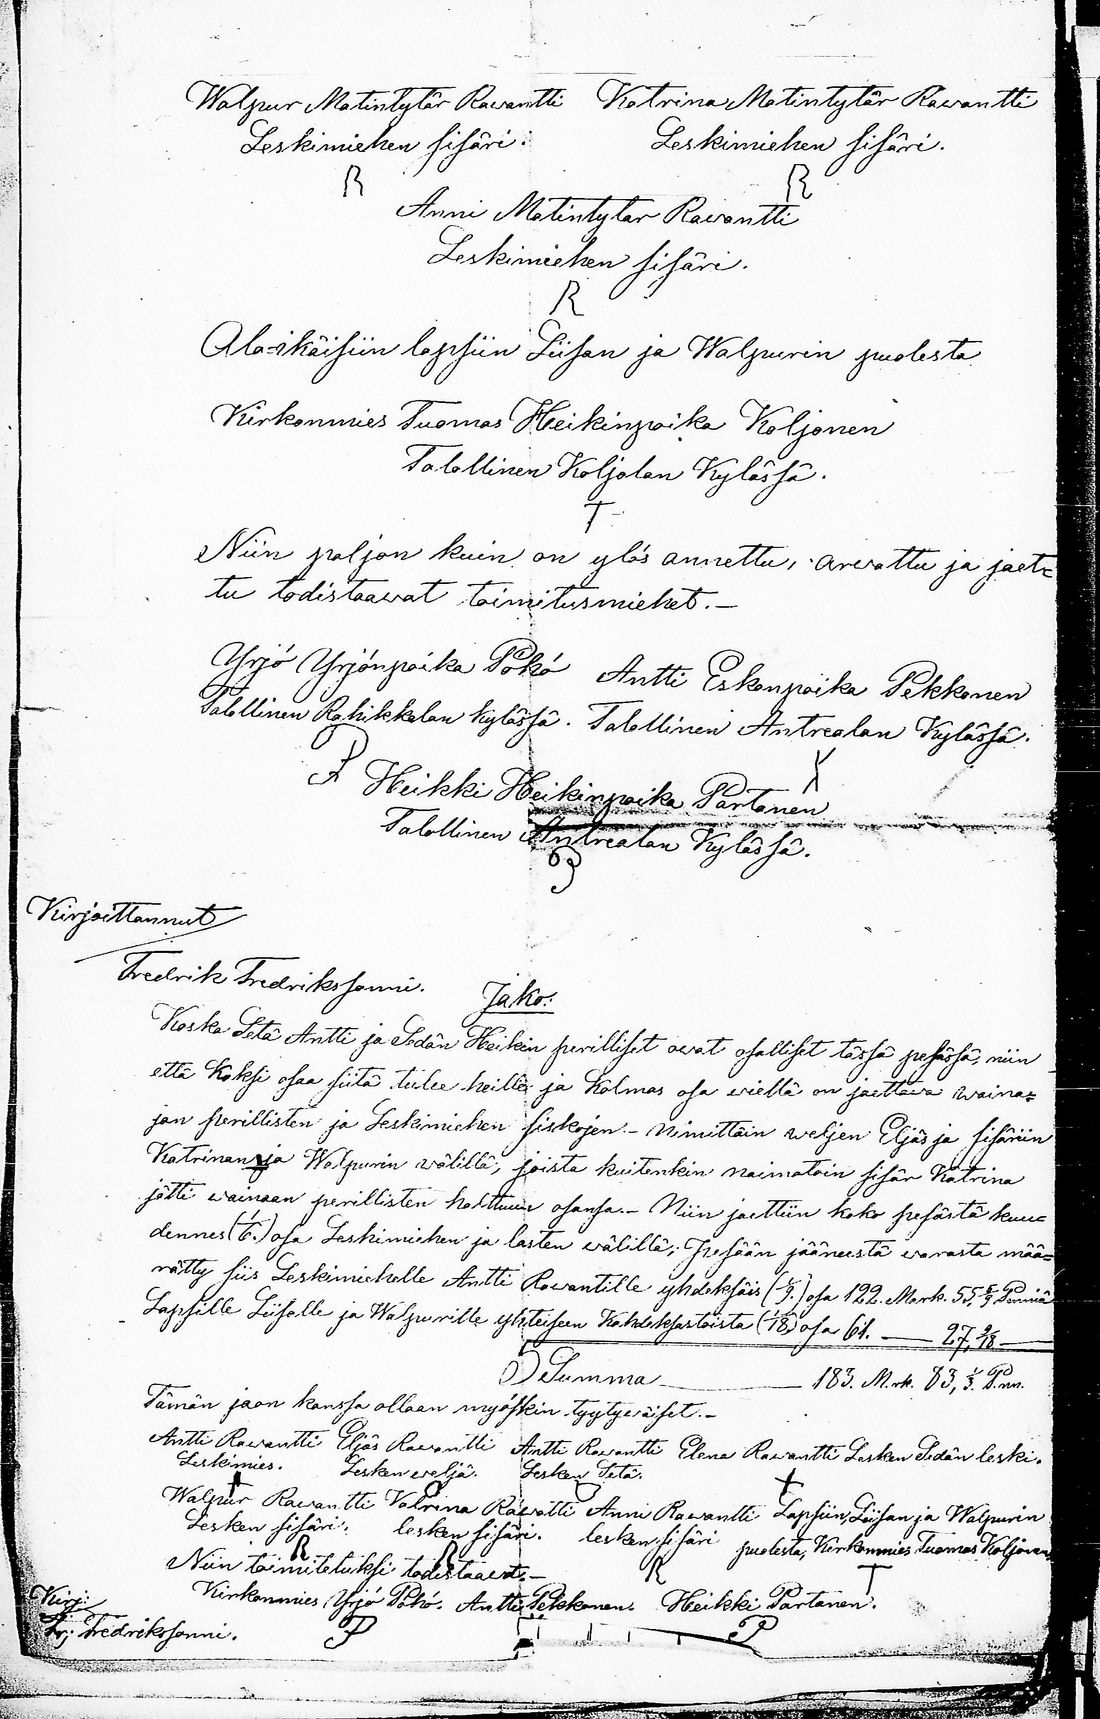 Walpur Matintytär Rawantti Katrina Matintytär Rawantti
Leskimiehen sisäri. Leskimiehen sisäri.
R R
Anni Matintytär Rawantti
Leskimiehen sisäri.
R
Ala-ikäisiin lapsiin Liisan ja Walpurin puolesta
Kirkonmies Tuomas Heikinpoika Koljonen
Talollinen Koljolan Kylässä.
T
Niin paljon kuin on ylös annettu, arwattu ja jaet=
tu todistaawat toimitusmiehet.—
Yrjö Yrjönpoika Pökö Antti Eskonpoika Pekkonen
Talollinen Rahikkalan kylässä. Talollinen Antrealan Kylässä.
Heikki Heikinpoika Partanen
Talollinen Antrealan Kylässä.
Kirjoittannut
Fredrik Fredrikssonni.
Jako:
Koska Setä Antti ja Sedän Heikin perilliset owat osalliset tässä pesässä, niin
että Kaksi osaa siitä tulee heille ja Kolmas osa wiellä on jaettawa waina=
jan perillisten ja Leskimiehen siskojen.— Nimittäin weljen Eljäs ja sisäriin
Katrinan ja Walpurin wälillä, joista kuitenkin naimatoin sisär Katrina
jätti wainaan perillisten haltuun osansa.— Niin jaettiin koko pesästä kuu=
dennes (1/6.) osa Leskimiehen ja lasten wälillä; Pesään jääneestä warasta mää=
rätty siis Leskimiehelle Antti Rawantille yhdeksäis (1/9.) osa 122. Mark. 55,5/9 Penniä
Lapsille Liisalle ja Walpurille yhteiseen Kahdeksastoista (1/18) osa 61. — 27,9/18 —
Summa — 183. Mrk. 83,1/3. Pnn.
Tämän jaon kanssa ollaan myöskin tyytywäiset.—
Antti Rawantti Eljäs Rawantti Antti Rawantti Elena Rawantti Lesken Sedän leski.
Leskimies. Lesken weljä. Lesken Setä.
Walpur Rawantti Katrina Rawatti Anni Rawantti Lapsiin Liisan ja Walpurin
Lesken sisäri. lesken sisäri. lesken sisäri puolesta, Kirkonmies Tuomas Koljonen
R R R T
Niin toimitetuksi todistaawat.—
Kirkonmies Yrjö Pökö. Antti Pekkonen. Heikki Partanen.
Kirj:
Fr: Fredrikssonni.
P P